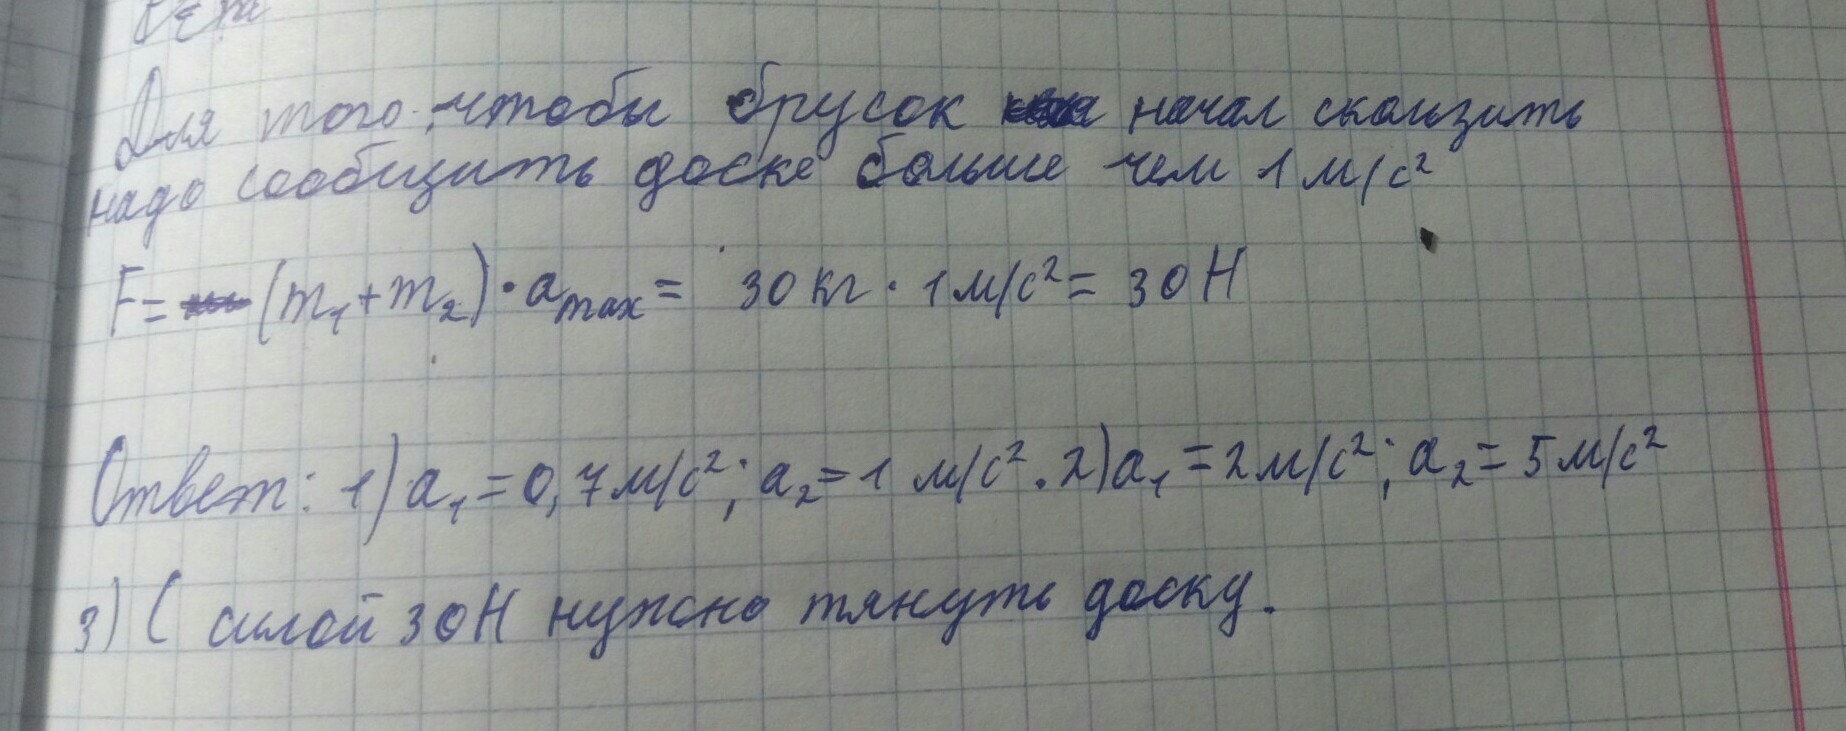 Для того, чтобы брусок начал скользить
надо сообщить доске больше чем 1 м/с²
F = (m₁+m₂)·a_max = 30 кг · 1 м/с² = 30 Н
Ответ: 1) a₁ = 0,7 м/с²; a₂ = 1 м/с². 2) a₁ = 2 м/с²; a₂ = 5 м/с²
3) С силой 30 Н нужно тянуть доску.